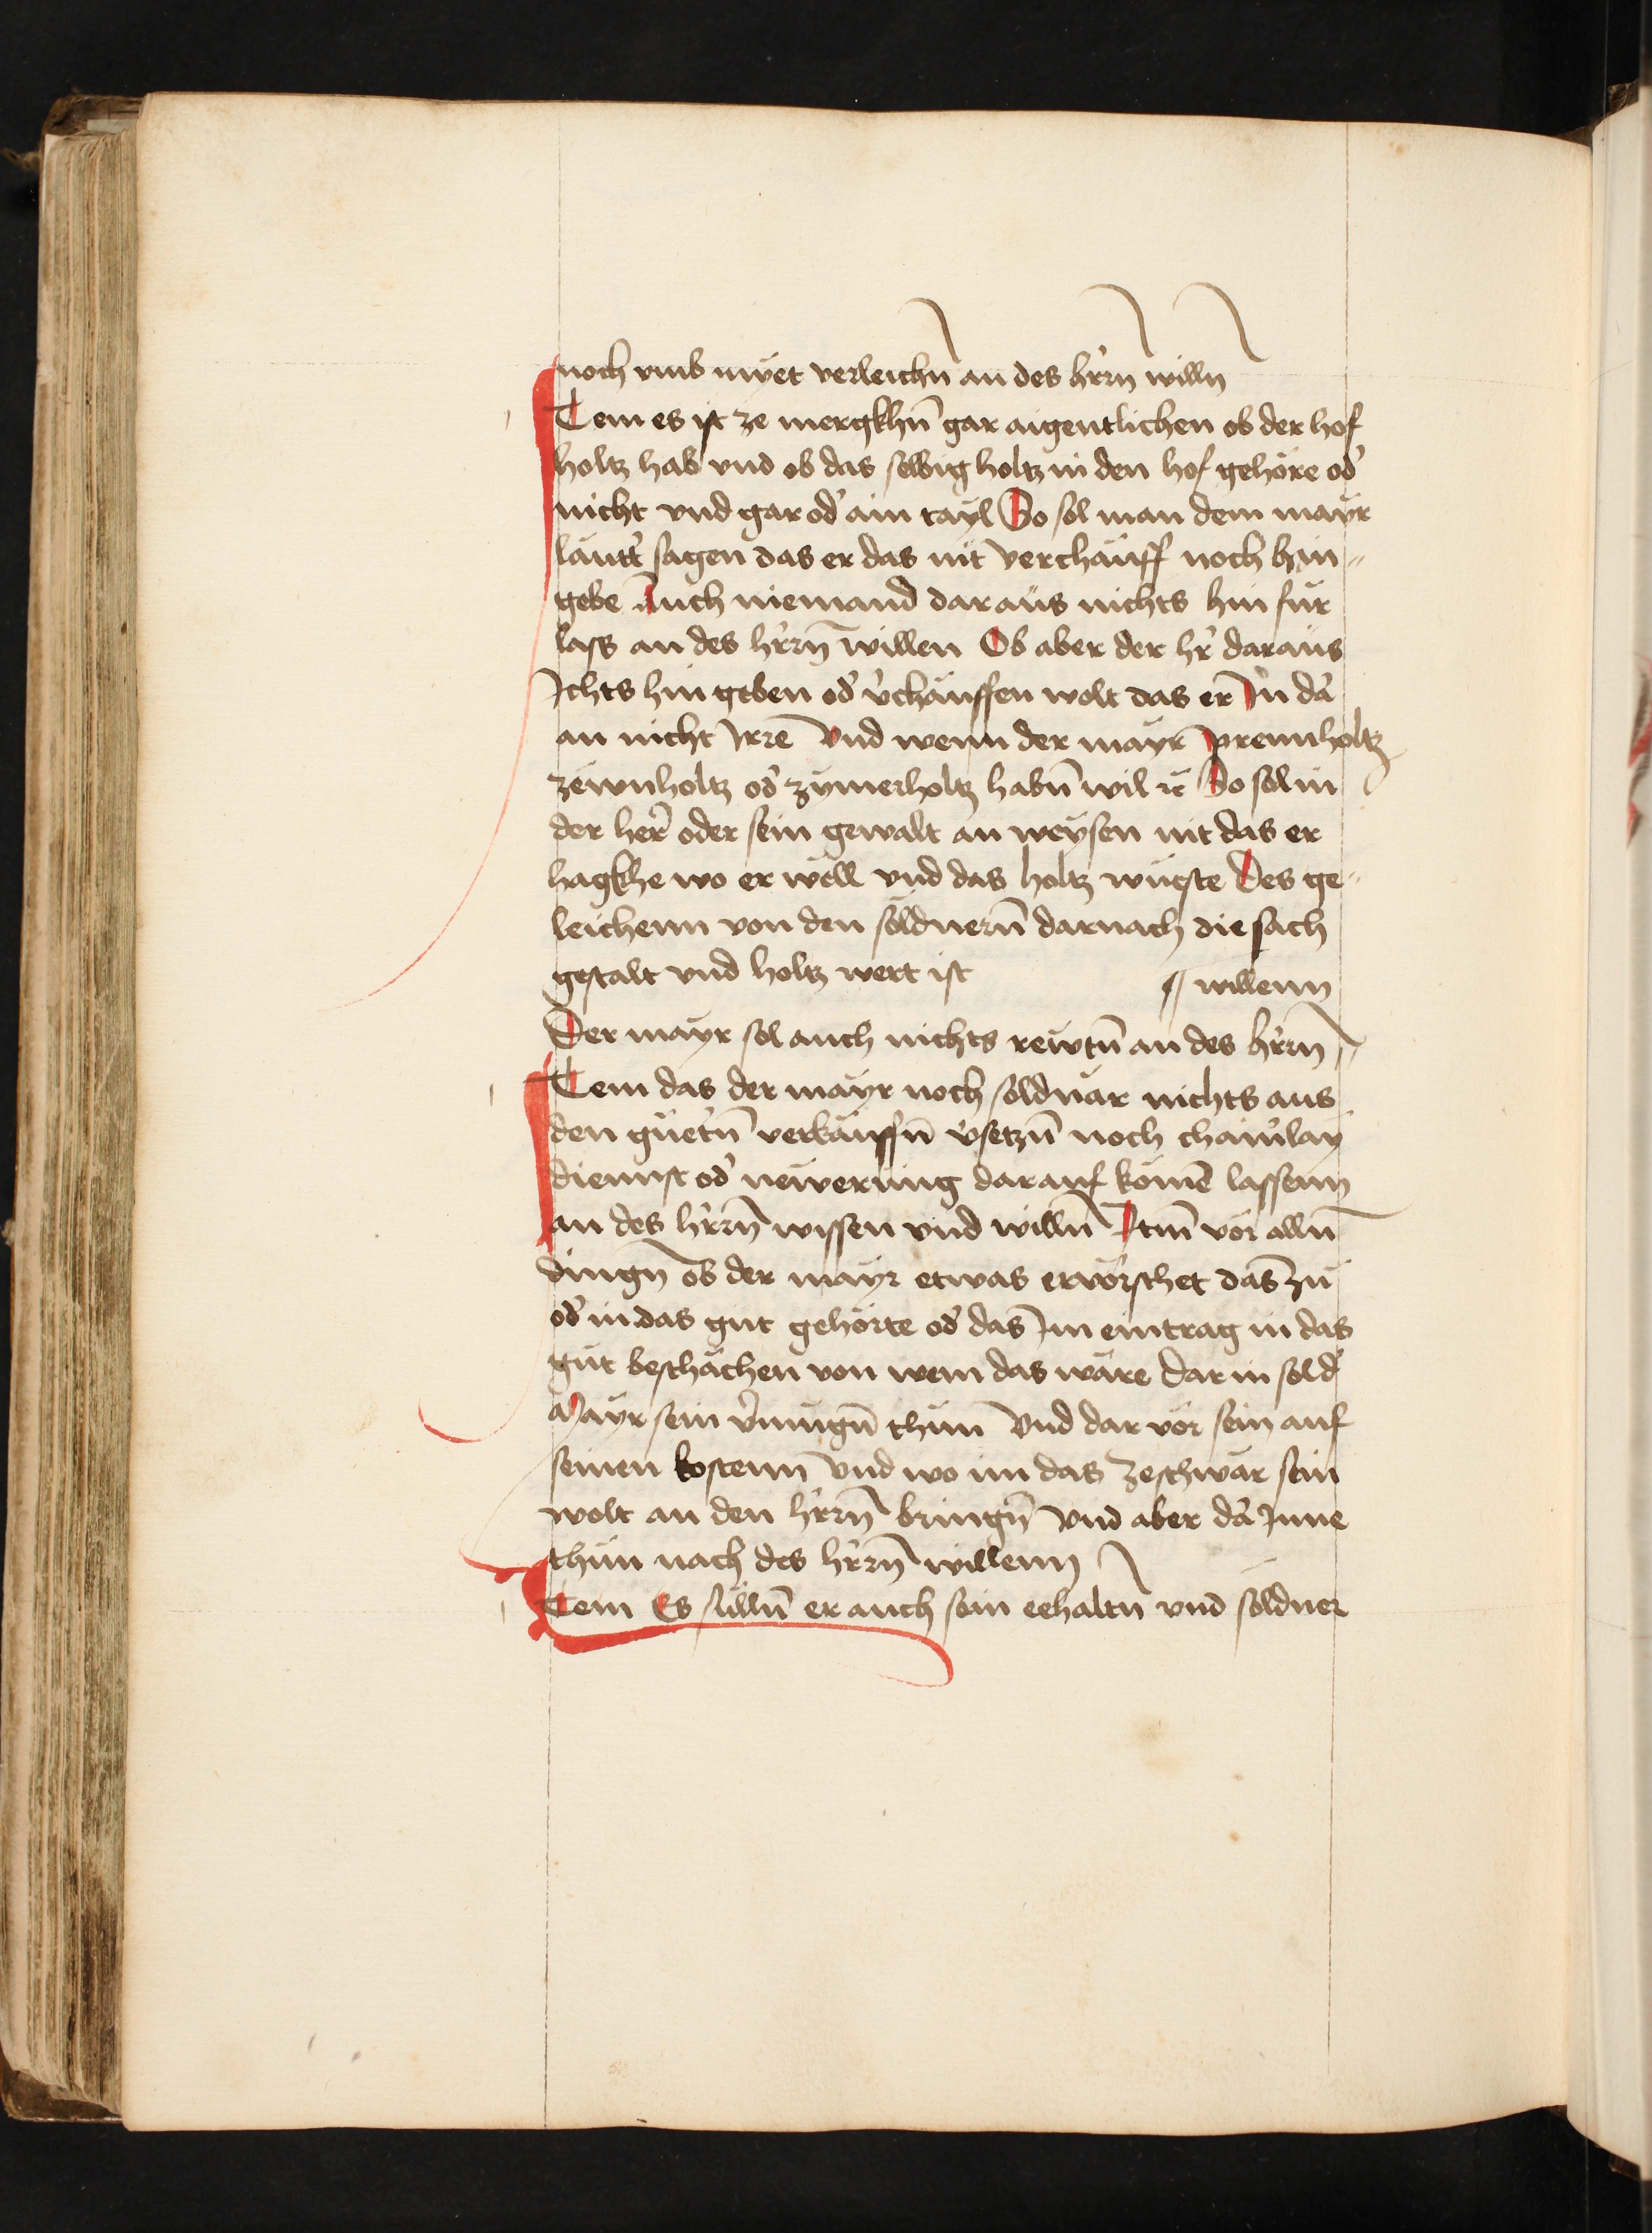 noch vmb myet verleichn̄ an des hr̓rn willn
Item es ist ze mergkhn̄ gar aigentlichen ob der hof
holtz hab vnd ob das selbig holtz in den hof gehöre od̓
nicht vnd gar od̓ ain tayl So sol man dem mayr
lautt̓ sagen das er das nit verchauff noch hin„
gebe Auch niemand daraus nichts hin fur
lass an des hr̓rn willen Ob aber der hr̓ daraus
Ichts hin geben od̓ v̓chauffen wolt das er In da̓
an nicht Irre Vnd wenn der mayr prennholtz
zewnholtz od̓ zymerholtz habn̄ wil ꝛc So sol in
der her̓ oder sein gewalt an weysen nit das er
hagkhe wo er wöll vnd das holtz wüste Des ge„
leichenn von den söldnern̄ darnach die sach
gestalt vnd holtz wert ist // willenn
Der mayr sol auch nichts rewtn̄ an des hr̓rn //
Item das der mayr noch soldnär nichts aus
den güetn̓ verkauffn̄ v̓setzn̄ noch chainlay
diennst od̓ newerung darauf komē lassenn
an des hr̓rn wissen vnd willn̄ Itm̄ vor alln̄
dingn̄ ob der mayr etwas ervörschet das zu
od̓ in das gut gehörte od̓ das Im eintrag in das
gut beschächen von wem das wäre Dar in sol d̓
Mayr sein v̓mugn̄ thun Vnd dar vor sein auf
seinen kostenn Vnd wo im das ze schwär sein
wolt an den hr̓rn bringn̄ Vnd aber da̓ Inne
thun nach des hr̓rn willenn
Item Es sülln̄ er auch sein eehaltn̄ vnd söldner